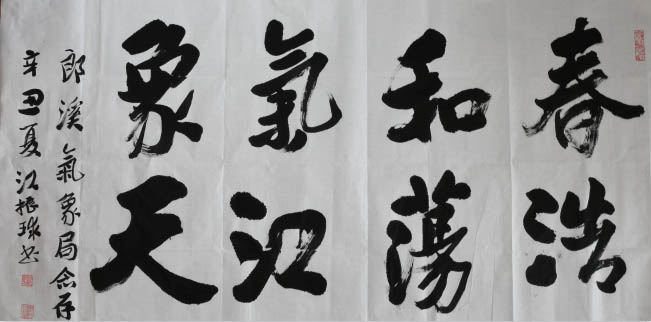 春和氣象
浩蕩江天
郎溪氣象局念存
辛丑夏江振球书